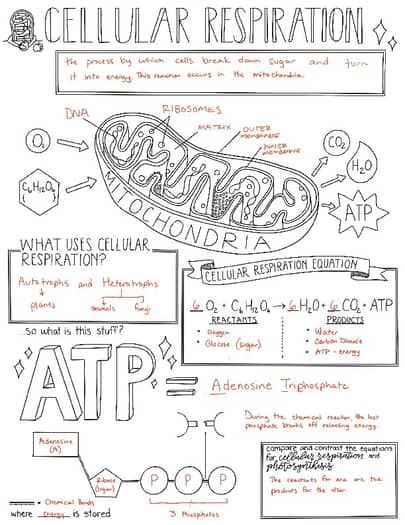 CELLULAR RESPIRATION
the process by which cells break down sugar and turn
it into energy. This reaction occurs in the mitochondria.
DNA
RIBOSOMES
MATRIX
OUTER
MEMBRANE
INNER
MEMBRANE
O₂
C₆H₁₂O₆
CO₂
H₂O
ATP
MITOCHONDRIA
WHAT USES CELLULAR
RESPIRATION?
Autotrophs and Heterotrophs
plants
animals
fungi
CELLULAR RESPIRATION EQUATION
6 O₂ + C₆H₁₂O₆ → 6 H₂O + 6 CO₂ + ATP
REACTANTS
• Oxygen
• Glucose (sugar)
PRODUCTS
• Water
• Carbon Dioxide
• ATP - energy
...so what is this stuff?
ATP = Adenosine Triphosphate
During the chemical reaction, the last
phosphate breaks off releasing energy.
Adenosine
(A)
Ribose
(sugar)
P P P
3 Phosphates
= Chemical Bonds
where energy is stored
Compare and contrast the equations
for cellular respiration and
photosynthesis
The reactants for one are the
products for the other.